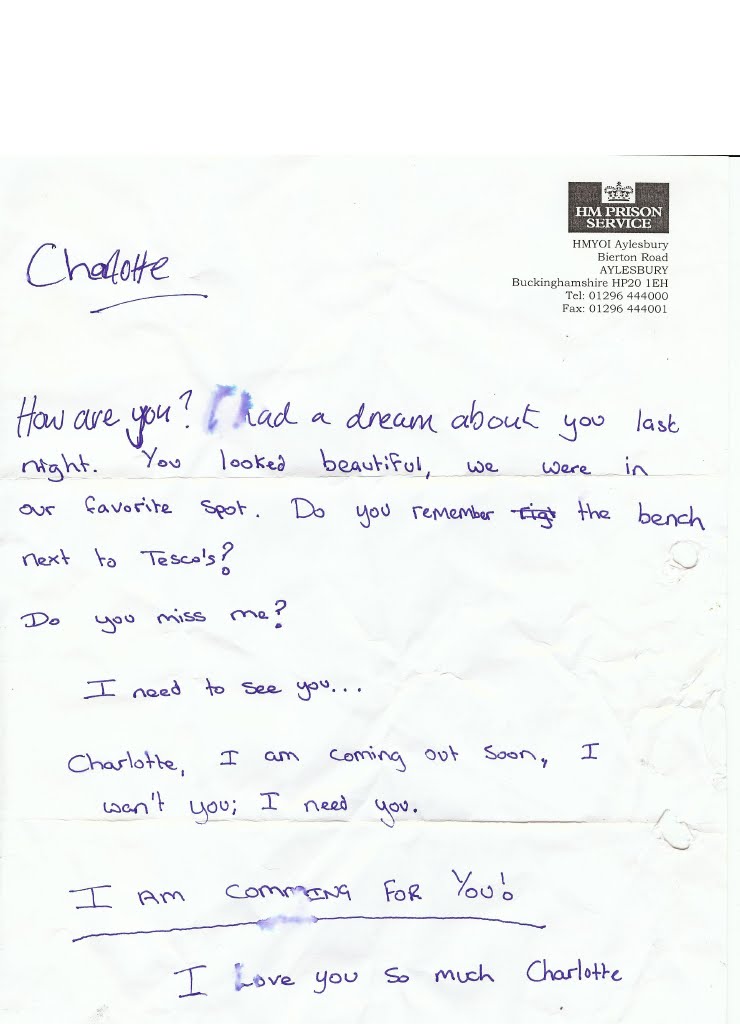 HM PRISON
SERVICE
HMYOI Aylesbury
Bierton Road
AYLESBURY
Buckinghamshire HP20 1EH
Tel: 01296 444000
Fax: 01296 444001
Charlotte
How are you? I had a dream about you last
night. You looked beautiful, we were in
our favorite spot. Do you remember the bench
next to Tesco's?
Do you miss me?
I need to see you...
Charlotte, I am coming out soon, I
wan't you; I need you.
I AM COMMING FOR YOU!
I Love you so much Charlotte